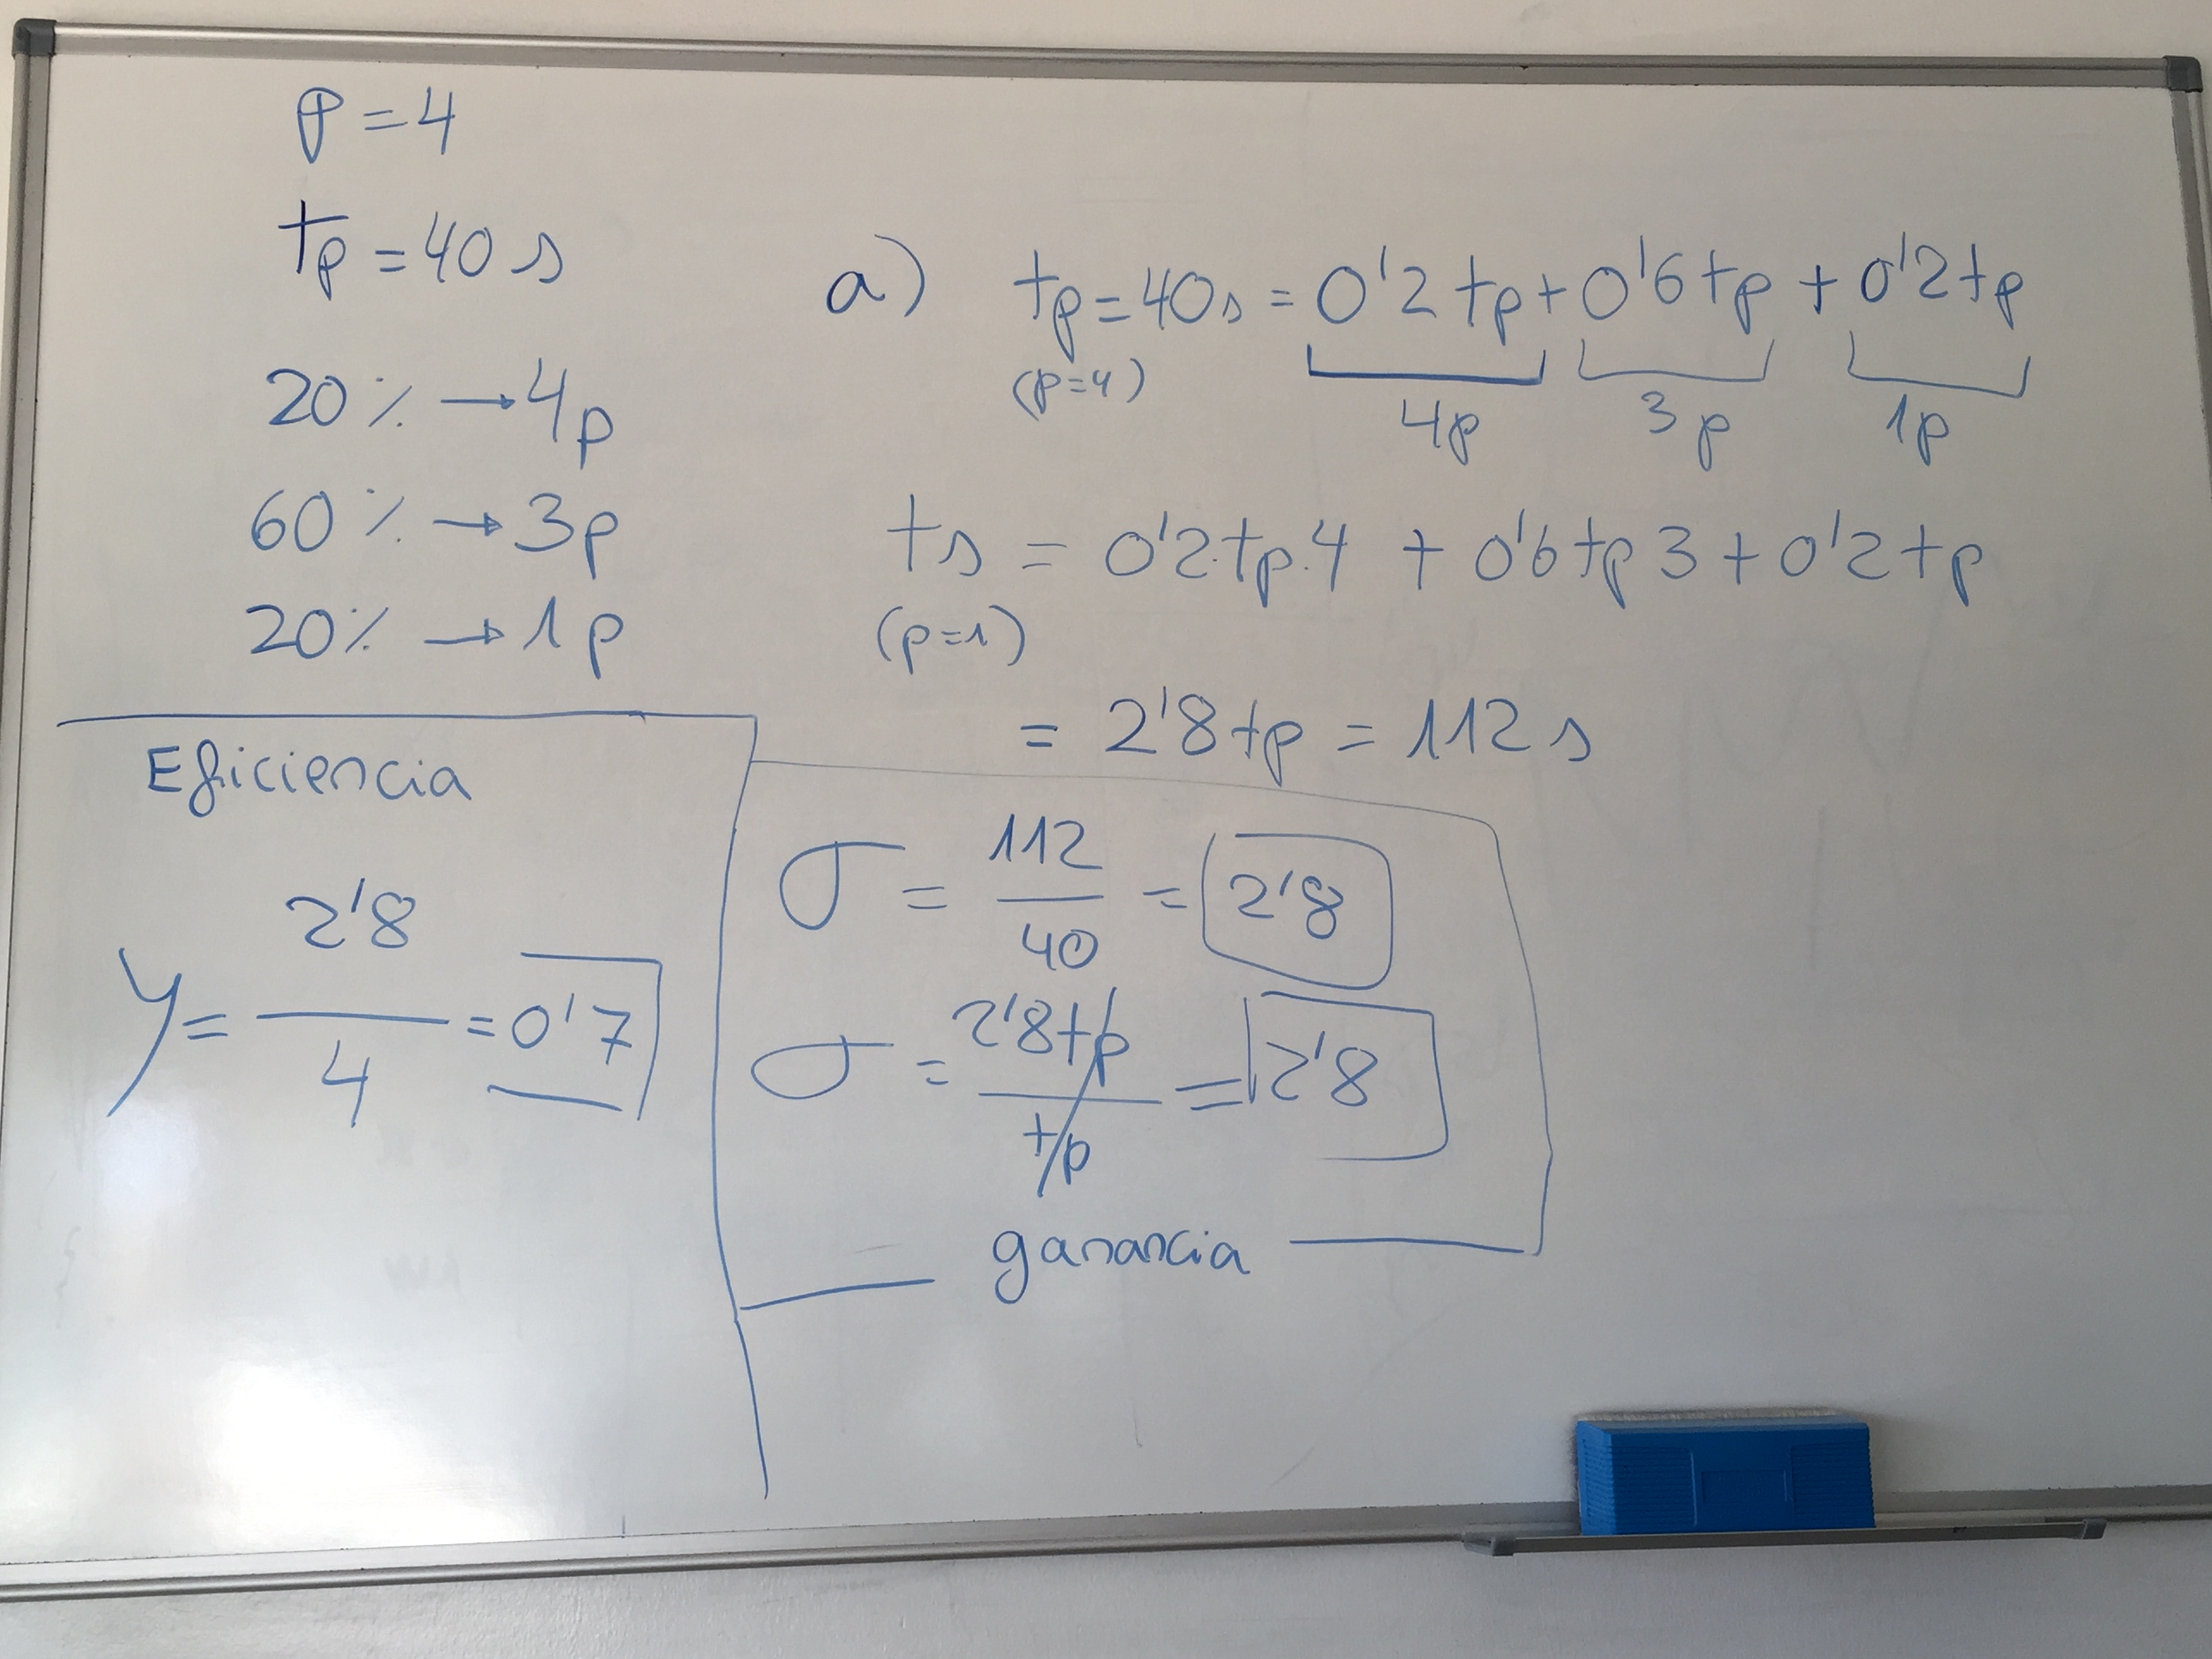 p = 4
tp = 40 s
20 % → 4p
60 % → 3p
20% → 1p
a) tp = 40s = 0'2 tp + 0'6 tp + 0'2 tp
(p=4) 4p 3p 1p
ts = 0'2·tp·4 + 0'6 tp 3 + 0'2 tp
(p=1)
= 2'8 tp = 112 s
Eficiencia
γ = 2'8 / 4 = 0'7
σ = 112 / 40 = 2'8
σ = 2'8 tp / tp = 2'8
ganancia